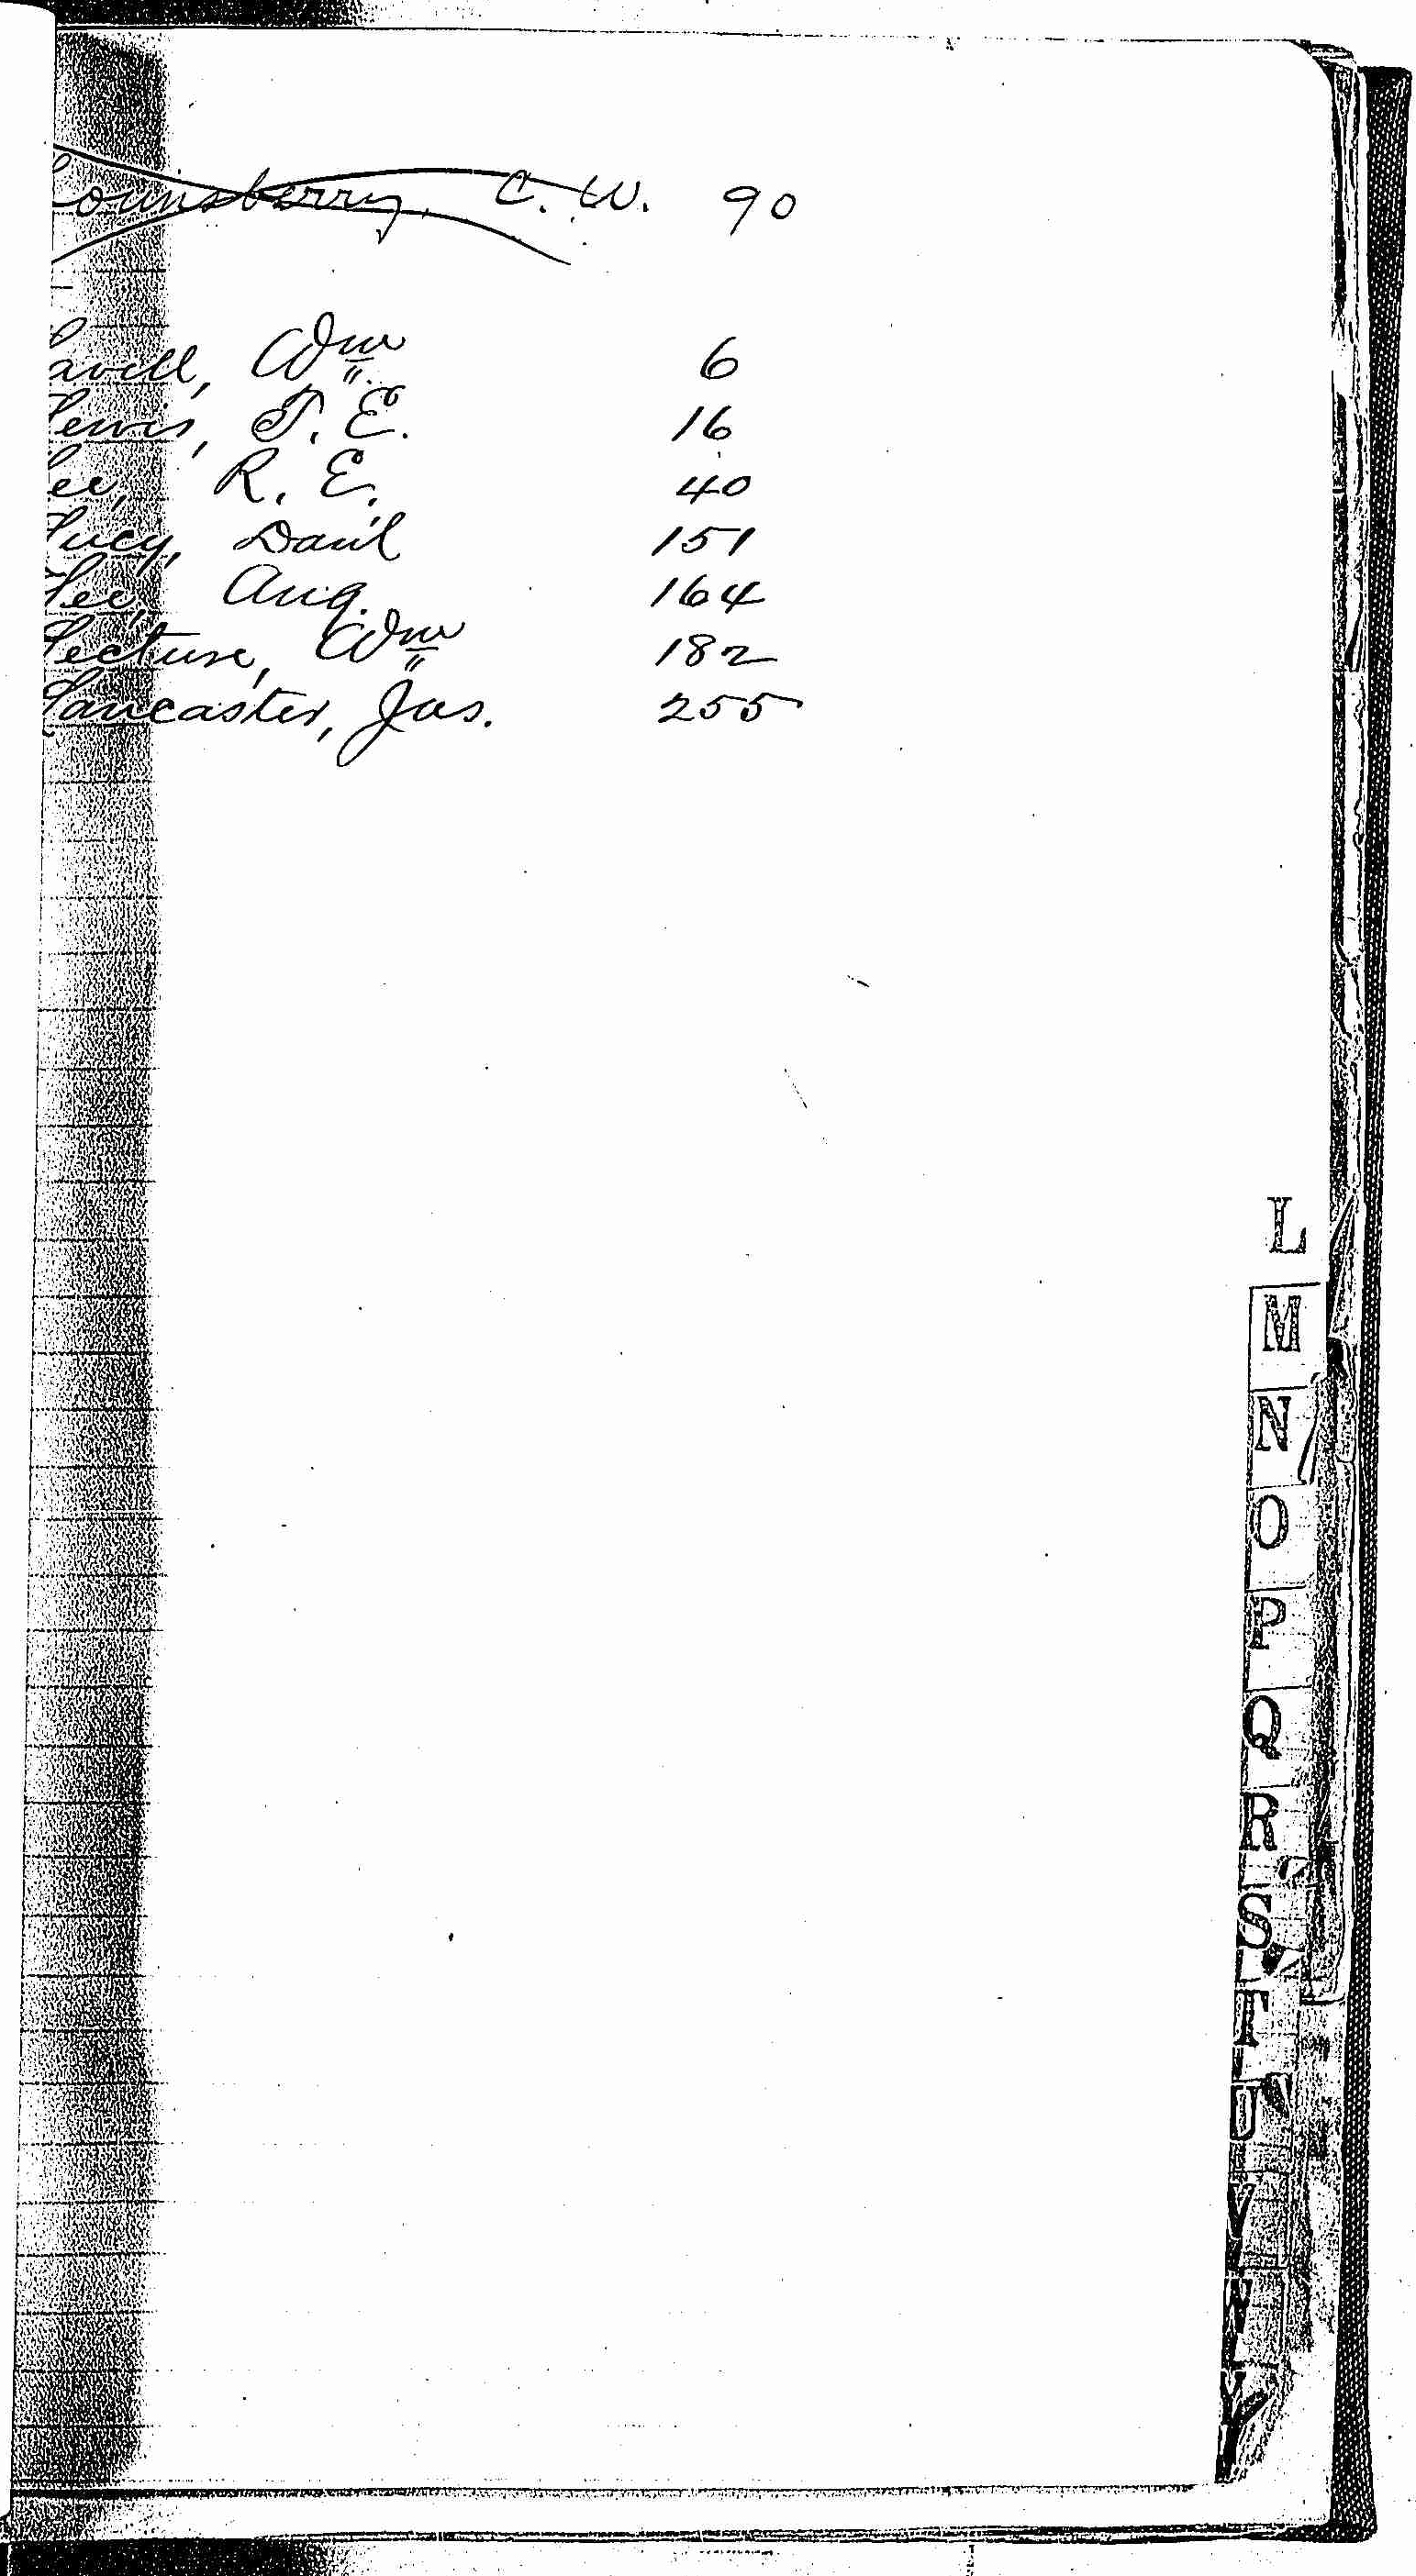 Lounsberry, C. W. 90
Lavell, Wm 6
Lewis, T. E. 16
Lee, R. E. 40
Lucy, Danl 151
Lee, Aug. 164
Lecture, Wm 182
Lancaster, Jas. 255
L
M
N
O
P
Q
R
S
T
U
V
W
Y